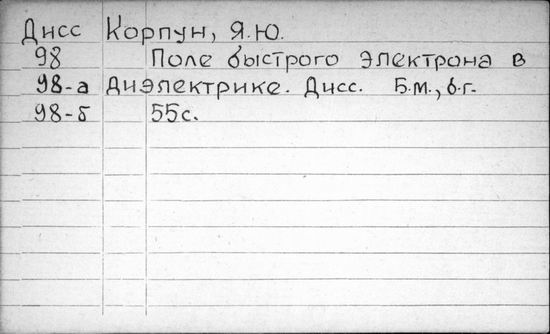 Дисс Корпун, Я.Ю.
98 Поле быстрого электрона в
98-а диэлектрике. Дисс. Б.м., б.г.
98-б 55с.